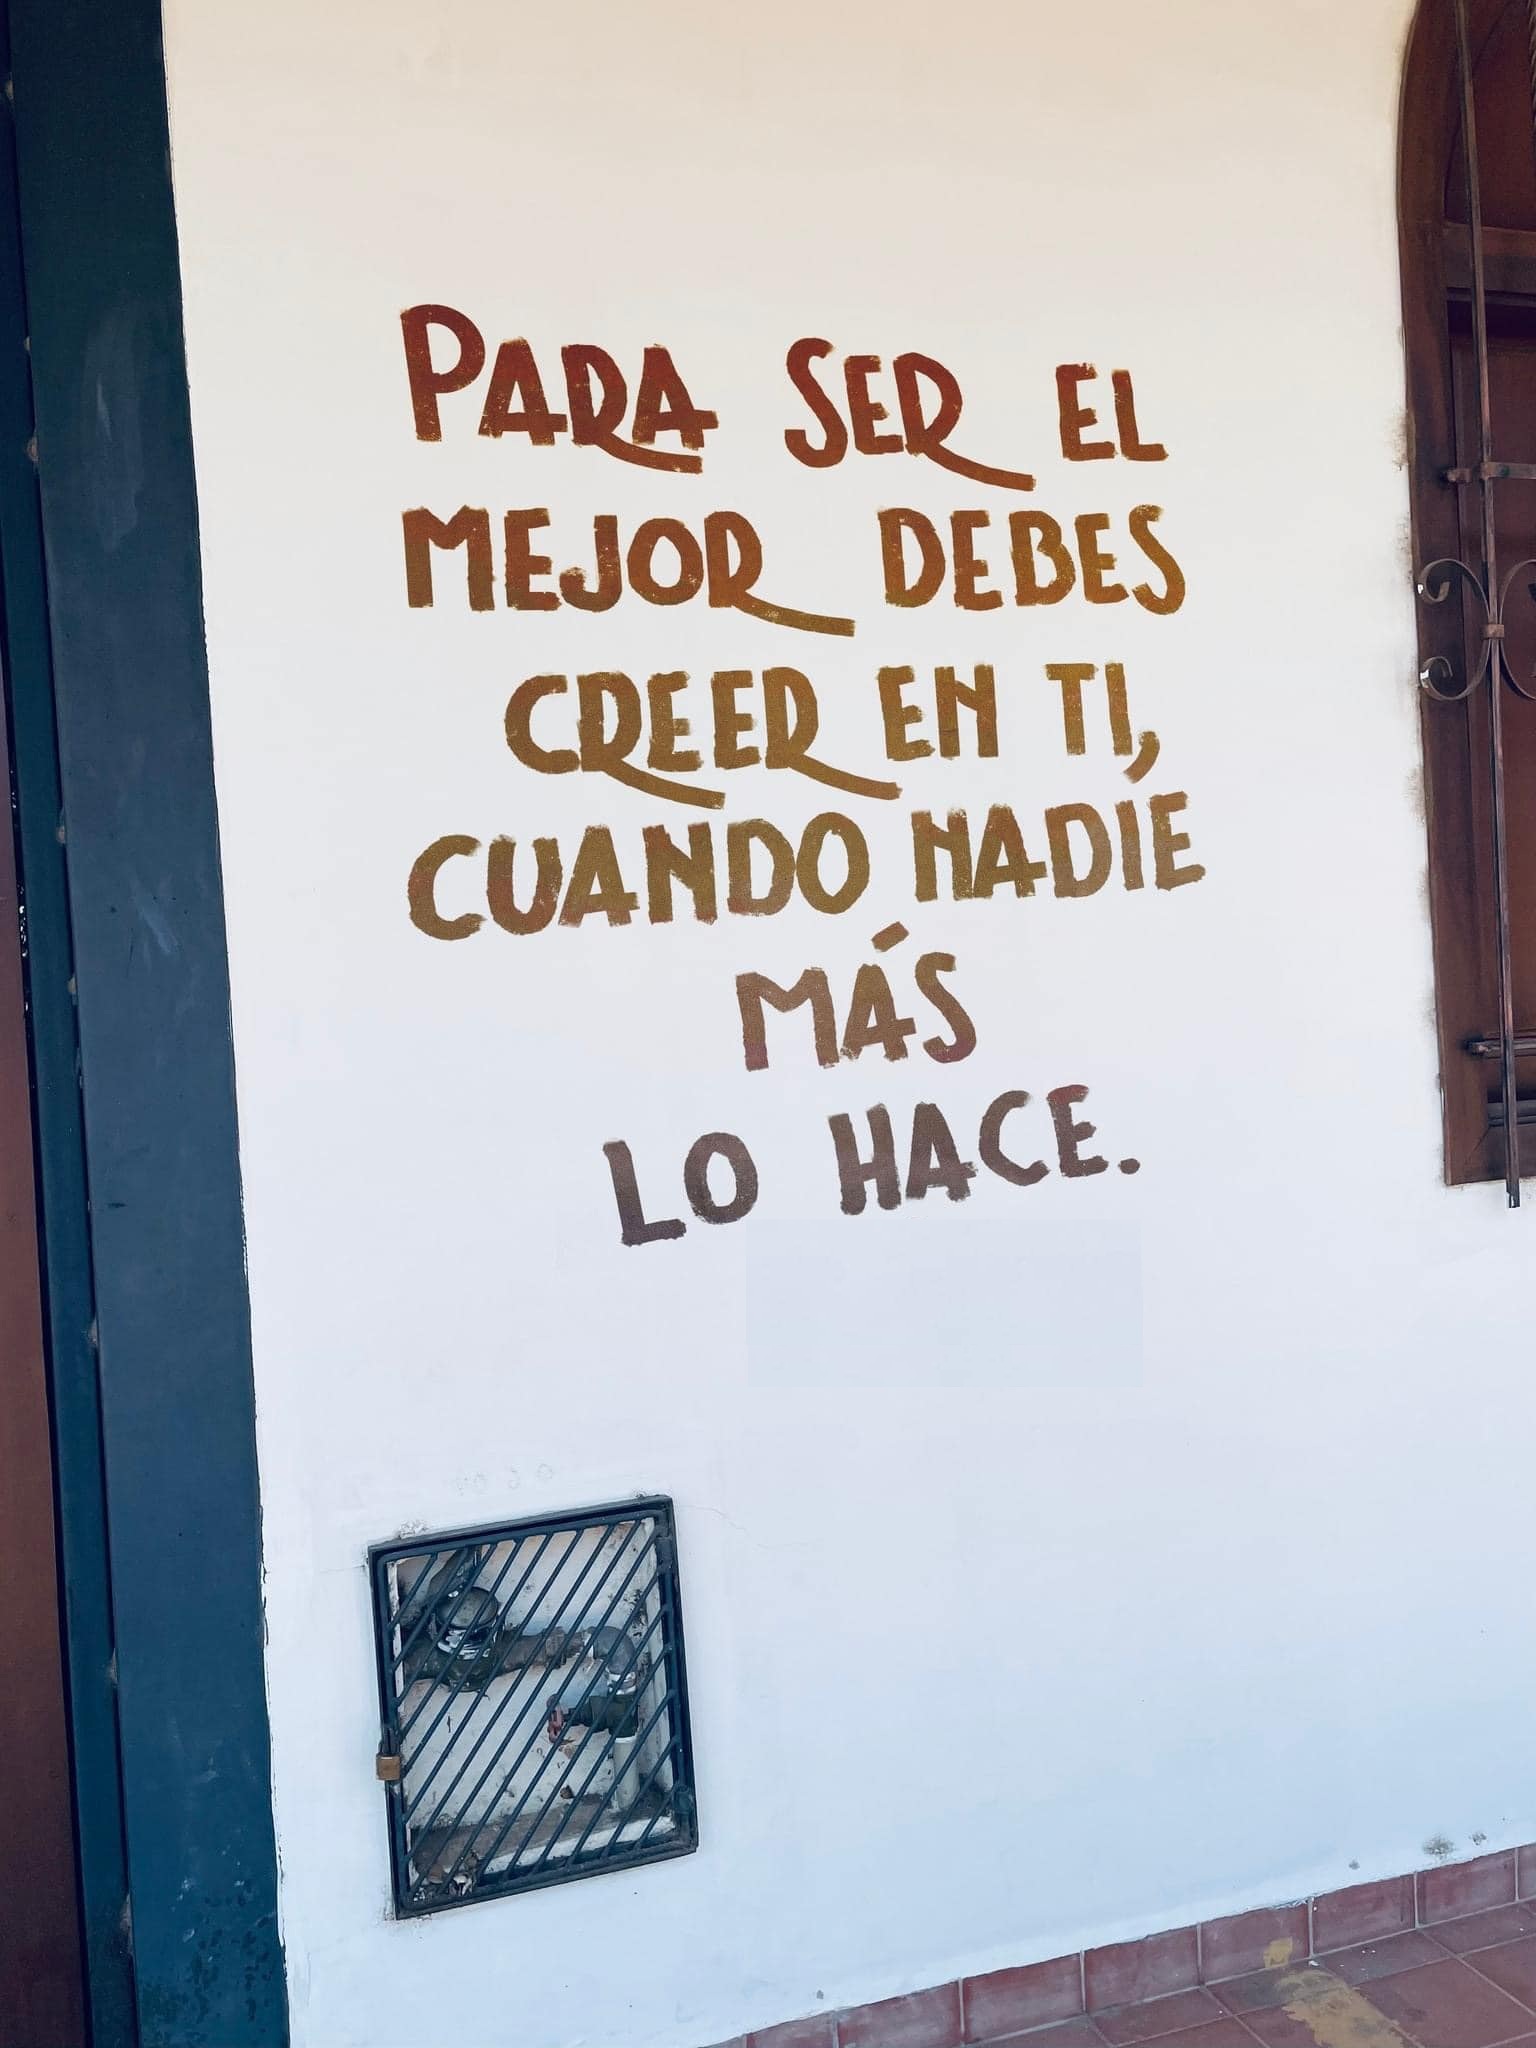 PARA SER EL
MEJOR DEBES
CREER EN TI,
CUANDO NADIE
MÁS
LO HACE.